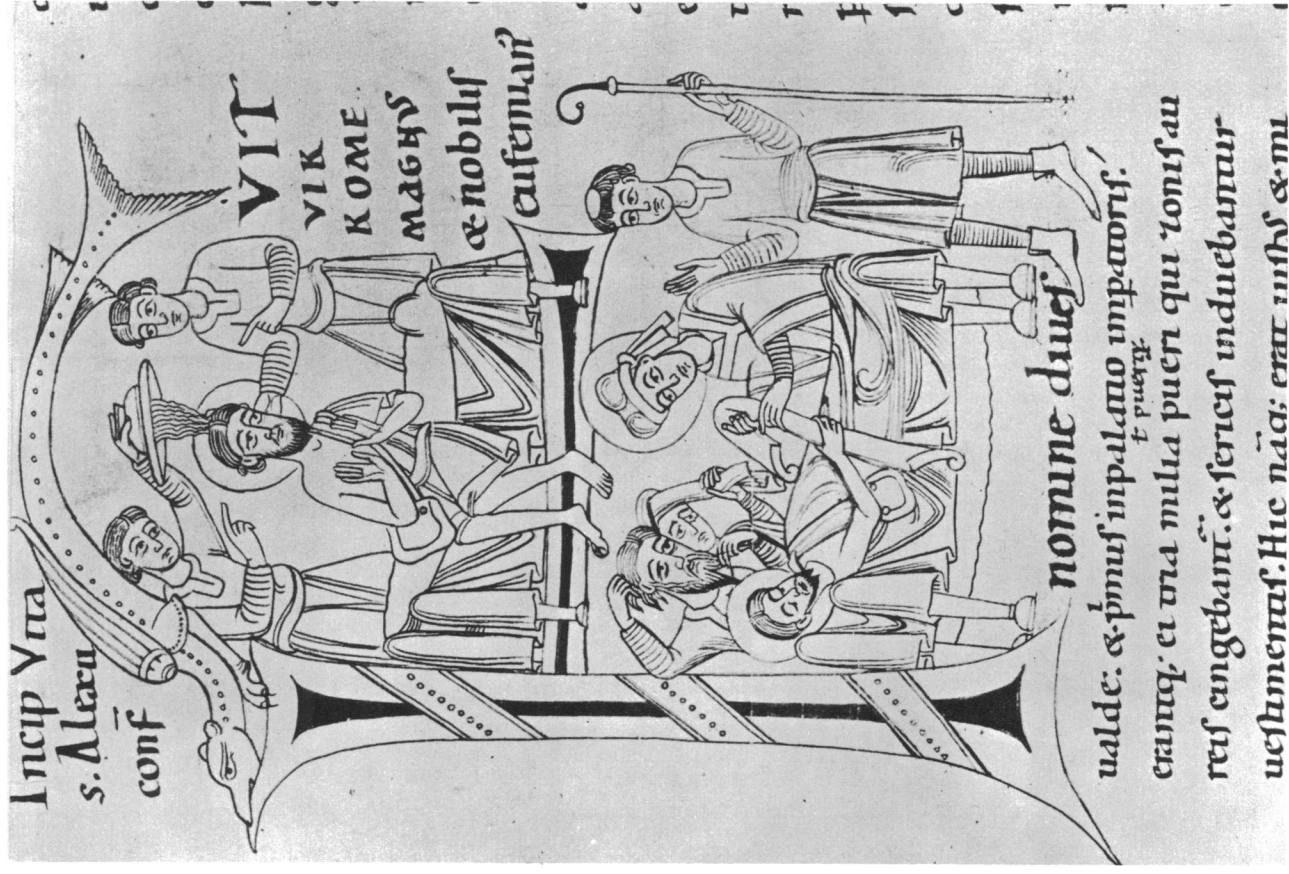 Incip Vita
s. Alexii
conf̄
VIT
VIR
ROME
MAGNVS
& nobilis
eufemian᷒
nomine diues
ualde. & p̍mus inpalatio imꝑatoris.
t̵ pueriq;
erantq; ei tria milia pueri qui zonis au
reis cangebant̄. & sericis induebantur
uestimentis. Hic nāq; erat iustus & mi